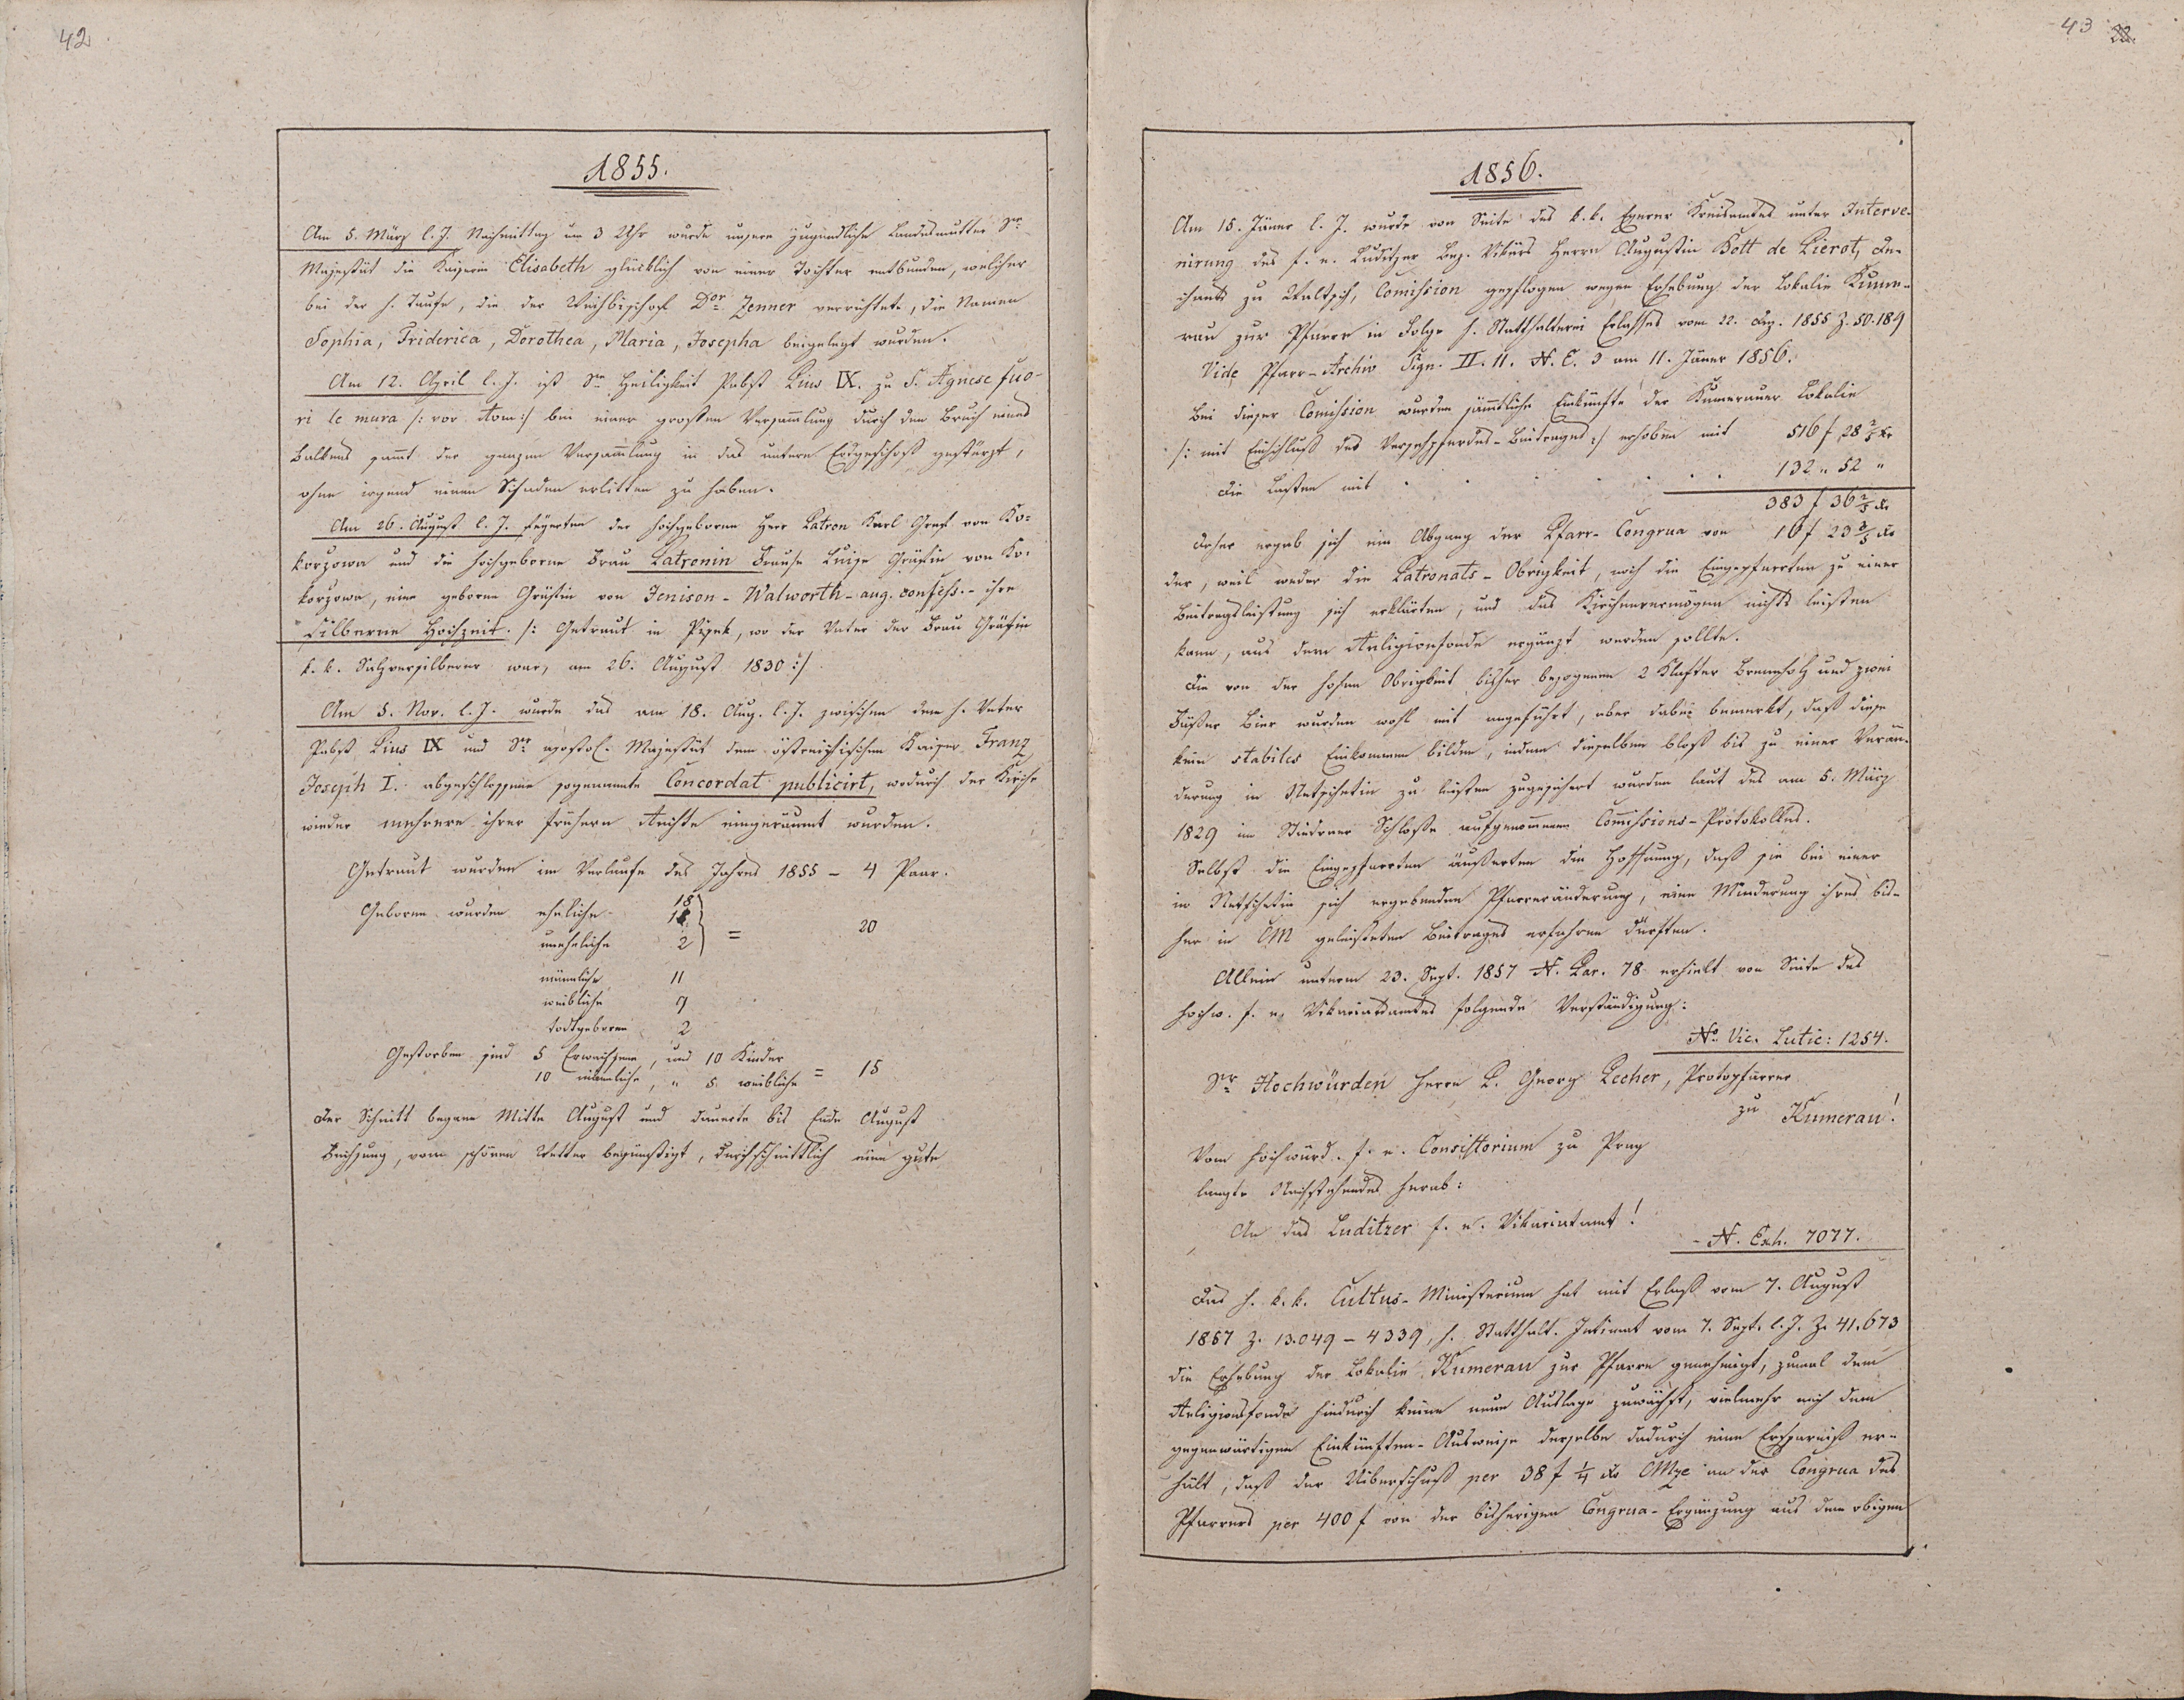 42
1855.
Am 5. März l. J. Nachmittag um 3 Uhr wurde unsere jugendliche Landesmutter Sr
Majestät die Kaiserin Elisabeth glücklich von einer Tochter entbunden, welcher
bei der h. Taufe, die der Weihbischof Dor Zenner verrichtete, die Namen
Sophia, Friderica, Dorothea, Maria, Josepha beigelegt wurden.
Am 12. April l. J. ist Se Heiligkeit Pabst Pius IX. zu S. Agnese fuo-
ri le mura /: vor Rom :/ bei einer großen Versamlung durch den Bruch eines
Balkens samt der ganzen Versamlung in das untere Erdgeschoß gestürzt,
ohne irgend einen Schaden erlitten zu haben.
Am 26. August l. J. feyerten der hochgeborne Herr Patron Karl Graf von Ko-
korzowa und die hochgeborne Frau Patronin Luise Gräfin von Ko-
korzowa, eine geborne Gräfin von Jenison-Walworth - aug. confess. - ihre
Silberne Hochzeit. /: Getraut in Pisek, wo der Vater der Frau Gräfin
k. k. Salzversilberer war, am 26. August 1830 :/
Am 5. Nov. l. J. wurde das am 18. Aug. l. J. zwischen dem h. Vater
Pabst Pius IX und Sr apostol. Majestät dem östreichischen Kaiser Franz
Joseph I. abgeschlossene sogenannte Concordat publicirt, wodurch der Kirche
wieder mehrere ihrer frühern Rechte eingeräumt wurden.
Getraut wurden im Verlaufe des Jahres 1855 - 4 Paar.
Geboren wurden eheliche 18
uneheliche 2 } = 20
männliche 11
weibliche 9
todtgeboren 2
Gestorben sind 5 Erwachsene, und 10 Kinder
10 männliche, " 5 weibliche = 15
Der Schnitt begann Mitte August und dauerte bis Ende August
Fechsung, vom schönen Wetter begünstigt, durchschnittlich eine gute
43
22.
1856.
Am 15. Jäner l. J. wurde von Seite des k. k. Egerer Kreisamtes unter Interve-
nirung des f. e. Luditzer Bez. Vikärs Herrn Augustin Kott de Pierot, De-
chants zu Waltsch, Comission gepflogen wegen Erhebung der Lokalie Kume-
rau zur Pfarre in Folge h. Statthalterei Erlasses vom 22. Dez. 1855 Z. 50.189
Vide Pfarr-Archiv Sign. II. 11. N. E. 3 am 11. Jäner 1856.
Bei dieser Comission wurden sämtliche Einkünfte der Kumerauer Lokalie
/: mit Einschluß des Versehpferdes-Beitrages :/ erhoben mit 516 f 28 2/5 Xr
die Lasten mit . . . . . 132 " 52 "
383 f 36 2/5 Xr
Daher ergab sich ein Abgang der Pfarr-Congrua von 16 f 23 3/5 Xr
der, weil weder die Patronats-Obrigkeit, noch die Eingepfarrten zu einer
Beitragsleistung sich erklärten, und das Kirchenvermögen nichts leisten
kann, aus dem Religionsfonde ergänzt werden sollte.
Die von der hohen Obrigkeit bisher bezogenen 2 Klafter Brennholz und zwei
Fäßer Bier wurden wohl mit angeführt, aber dabei bemerkt, daß diese
kein stabiles Einkommen bilden, indem dieselben bloß bis zu einer Verän-
derung in Netschetin zu leisten zugesichert wurden laut des am 5. März
1829 im Schloße aufgenommenen Comissions-Protokolles.
Selbst die Eingepfarrten äußerten die Hoffnung, daß sie bei einer
in Netschetin sich ergebenden Pfarrveränderung, eine Minderung ihres bis-
her in CM geleisteten Beitrages erfahren dürften.
Allein unterm 23. Sept. 1857 N. Par. 78 erhielt von Seite des
hochw. f. e. Vikariatsamtes folgende Verständigung:
No Vic. Lutic: 1254.
Sr Hochwürden Herrn P. Georg Pecher, Protopfarrer
zu Kumerau!
Vom hochwürd. f. e. Consistorium zu Prag
langte Nachstehendes herab:
An das Luditzer f. e. Vikariatamt!
N. Exh. 7077.
Das h. k. k. Cultus-Ministerium hat mit Erlaß vom 7. August
1857 Z. 13.049 - 4339, h. Statthalt. Intimat vom 7. Sept. l. J. Z. 41.673
die Erhebung der Lokalie Kumerau zur Pfarre genehmigt, zumal dem
Religionsfonde hiedurch keine neue Auslage zuwächst, vielmehr nach dem
gegenwärtigen Einkünften-Ausweise derselbe dadurch eine Ersparniß er-
hält, daß der Uiberschuß per 38 f 1/4 Xr CMze an der Congrua des
Pfarrers per 400 f von der bisherigen Congrua-Ergänzung aus dem obigen